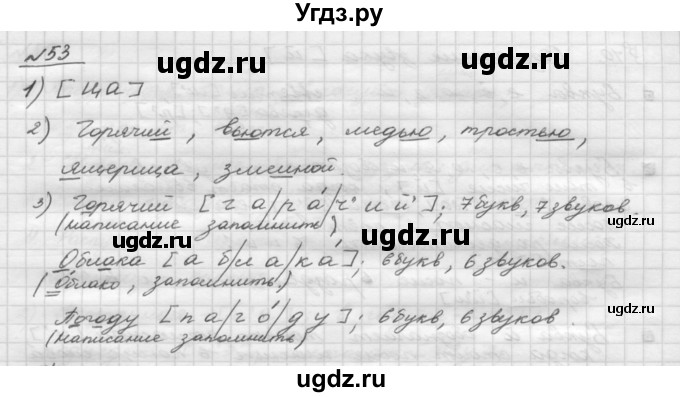 Угдз.ру
№53
1) [ ца ]
2) Горячий, вьются, медью, тростью,
ящерица, змеиной.
3) Горячий [г а/р а́/ч' и й']; 7 букв, 7 звуков.
(написание запомнить)
Облака [а б/л а/к а́]; 6 букв, 6 звуков.
(Облако, запомнить)
Погоду [п а/г о́/д у]; 6 букв, 6 звуков.
(написание запомнить)
ugdz.ru
ugdz.ru
ugdz.ru
ugdz.ru
ugdz.ru
ugdz.ru
ugdz.ru